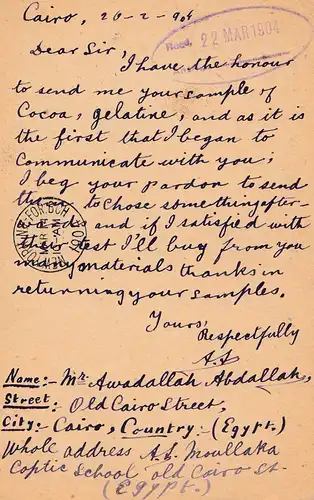 Cairo, 26-2-904
Recd. 22 MAR 1904
Dear Sir,
I have the honour
to send me your sample of
Cocoa, gelatine, and as it is
the first that I began to
communicate with you;
I beg your pardon to send
to chose something after-
and if I satisfied with
test I'll buy from you
my materials thanks in
returning your samples.
Yours,
Respectfully
A.A
Name:- Mr. Awadallah Abdallah,
Street:- Old Cairo Street,
City:- Cairo, Country:- (Egypt.)
Whole address A.E. Moullaka
Coptic School old Cairo St.
(Egypt.)